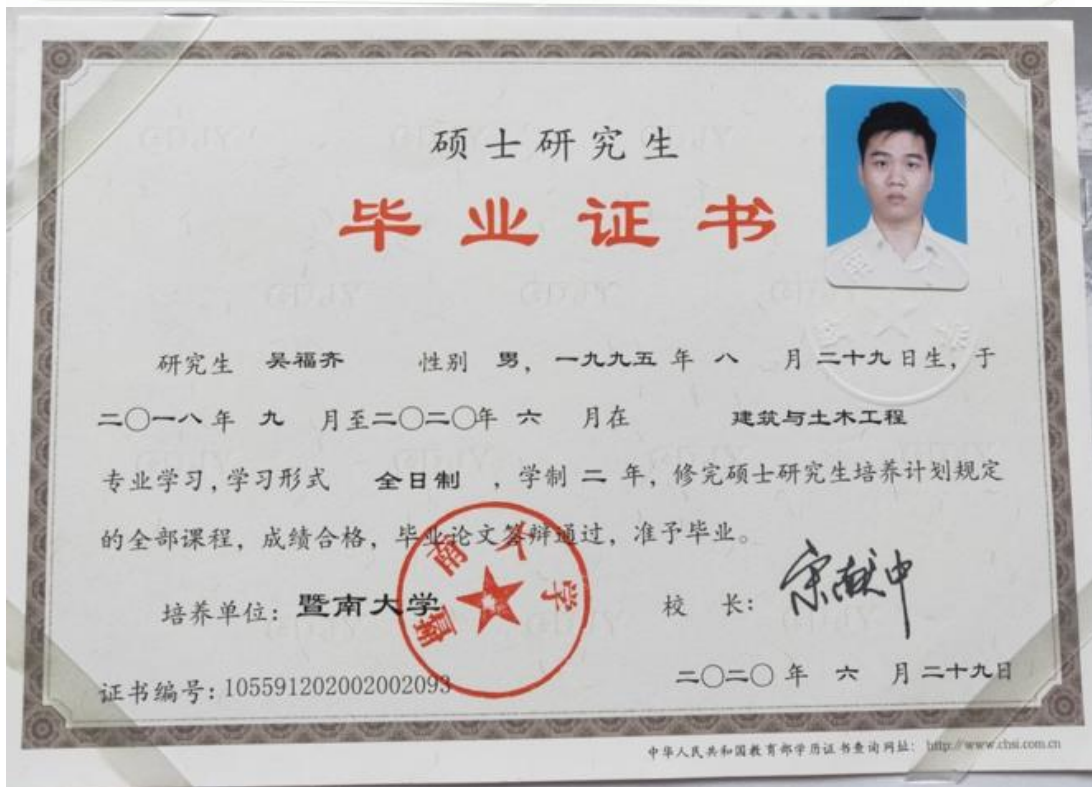 硕士研究生
毕业证书
研究生 吴福齐 性别 男，一九九五 年 八 月 二十九 日生，于
二〇一八 年 九 月至 二〇二〇 年 六 月在 建筑与土木工程
专业学习，学习形式 全日制 ，学制 二 年，修完硕士研究生培养计划规定
的全部课程，成绩合格，毕业论文答辩通过，准予毕业。
暨南大学
培养单位：暨南大学 校 长：宋献中
证书编号：105591202002002093 二〇二〇 年 六 月 二十九日
中华人民共和国教育部学历证书查询网址：http://www.chsi.com.cn